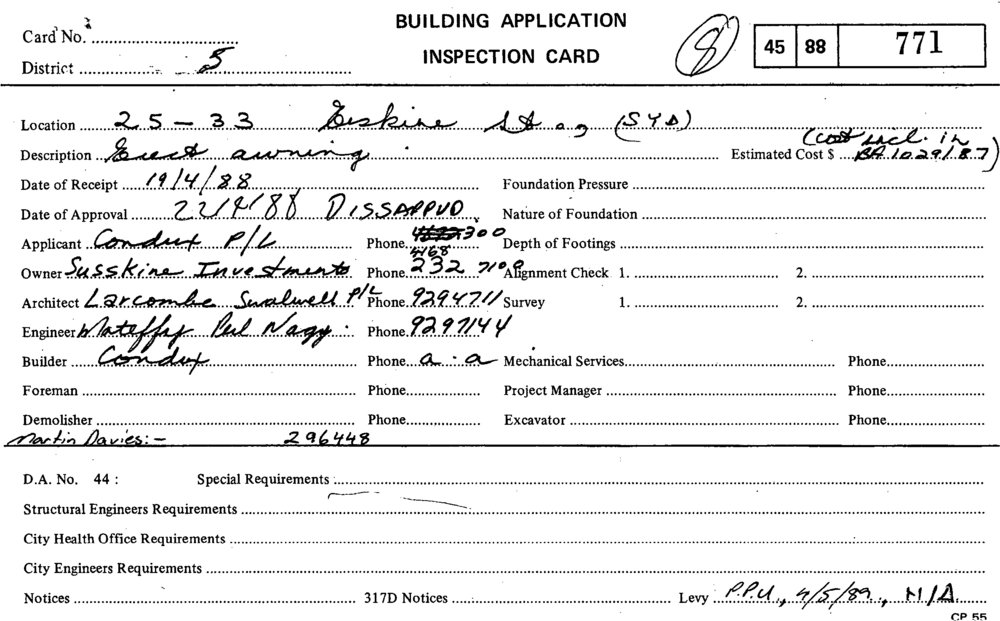 BUILDING APPLICATION
INSPECTION CARD
Card No.
District 5
8
45 88 771
Location 25 - 33 Erskine St (SYD)
Description Erect awning. Estimated Cost $ (cost incl. in BA.1029/87)
Date of Receipt 19/4/88 Foundation Pressure
Date of Approval 22/9/88 DISSAPPVD Nature of Foundation
Applicant Condux P/L Phone 300 Depth of Footings
4168
Owner Susskine Investments Phone 232 7109 Alignment Check 1. 2.
Architect Larcombe Swalwell P/L Phone 9294711 Survey 1. 2.
Engineer Mateffy Perl Nagy. Phone 9297144
Builder Condux Phone a.a Mechanical Services Phone
Foreman Phone Project Manager Phone
Demolisher Phone Excavator Phone
Martin Davies:- 296448
D.A. No. 44 : Special Requirements
Structural Engineers Requirements
City Health Office Requirements
City Engineers Requirements
Notices 317D Notices Levy P.P.U., 4/5/89., N/A
CP 55